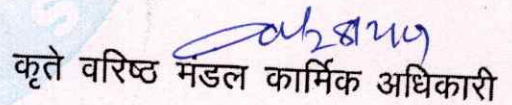 कृते वरिष्ठ मंडल कार्मिक अधिकारी